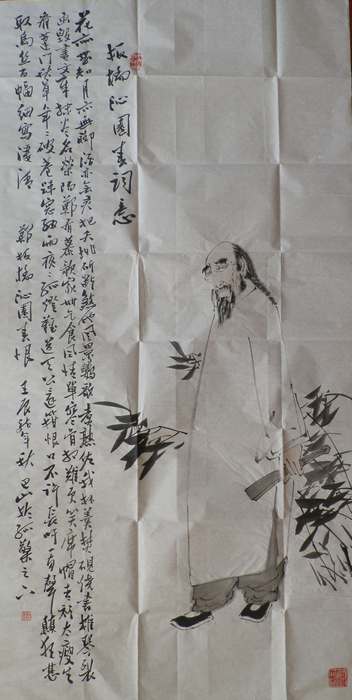 板橋沁園春詞意
花亦無知月亦無聊酒亦無靈把夭桃斫斷煞他風景鸚歌煮熟佐我杯羹焚硯燒書椎琴裂
畫毀盡文章抹盡名滎陽鄭有慕歌家世乞食風情單寒骨相難更笑席帽青衫太瘦生
看蓬門秋草年々破巷疏窗細雨夜々孤燈難道天公還箝恨口不許長吁一兩聲顛狂甚
取烏絲百幅細寫淒清 鄭板橋沁園春恨 壬辰龍年秋 巴山 孤 之下